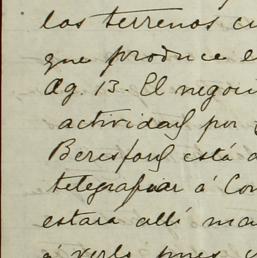 los terrenos cu
que produce e
Ag. 13. El negoci
actividad por
Beresford está a
telegrafiar á Con
estará allí ma
á verlo pues